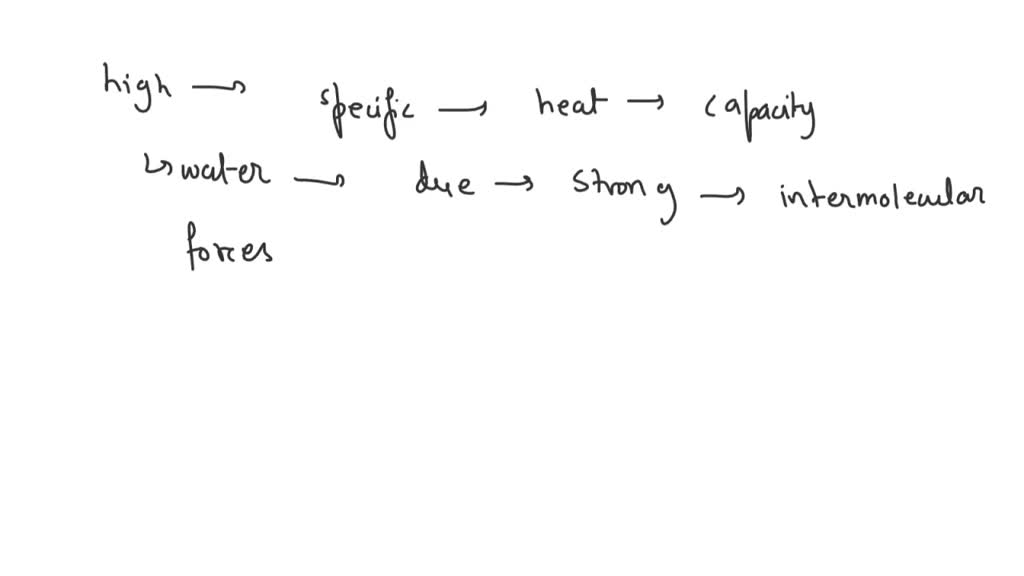 high → specific → heat → capacity
↳ water → due → strong → intermolecular
forces